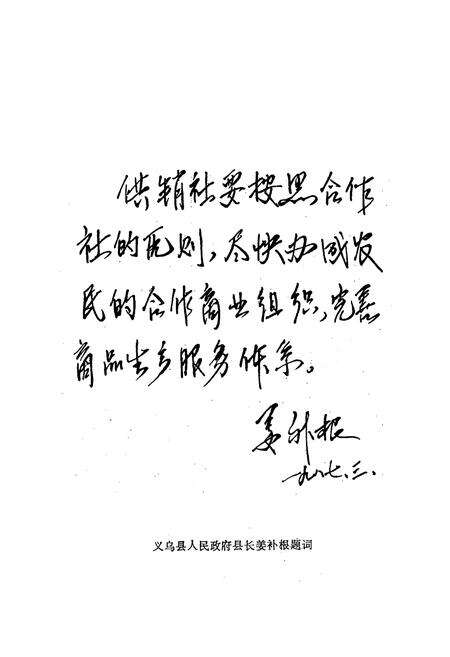 供销社要按照合作
社的原则，尽快办成农
民的合作商业组织，完善
商品生产服务体系。
姜补根
一九八七.三.
义乌县人民政府县长姜补根题词